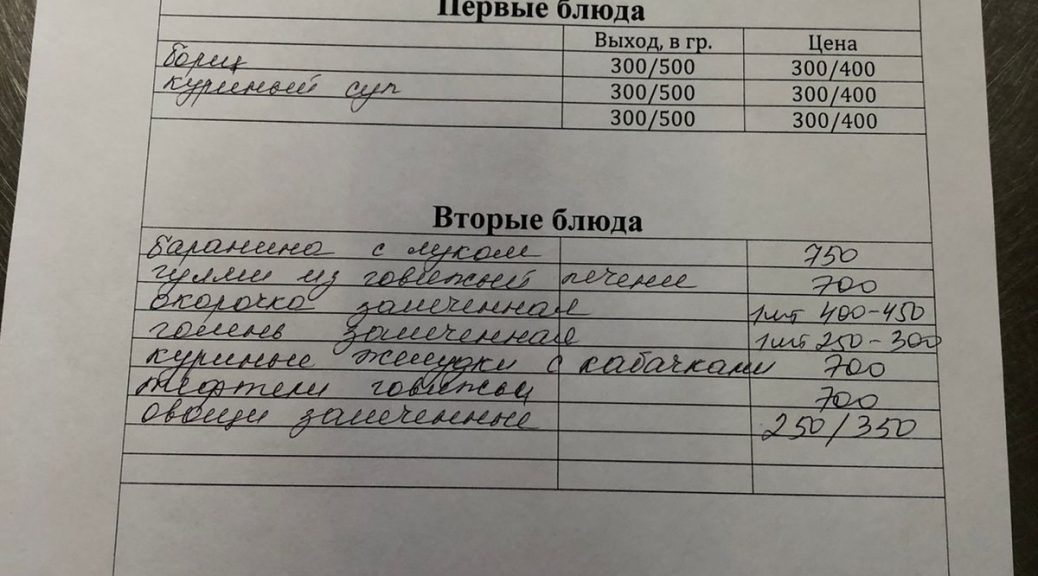 Первые блюда
Выход, в гр. Цена
борщ 300/500 300/400
куриный суп 300/500 300/400
300/500 300/400
Вторые блюда
баранина с луком 750
гуляш из говяжьей печени 700
окорочка запеченная 1шт 400-450
голень запеченная 1шт 250-300
куриные желудки с кабачками 700
тефтели говяжьи 700
овощи запеченные 250/350